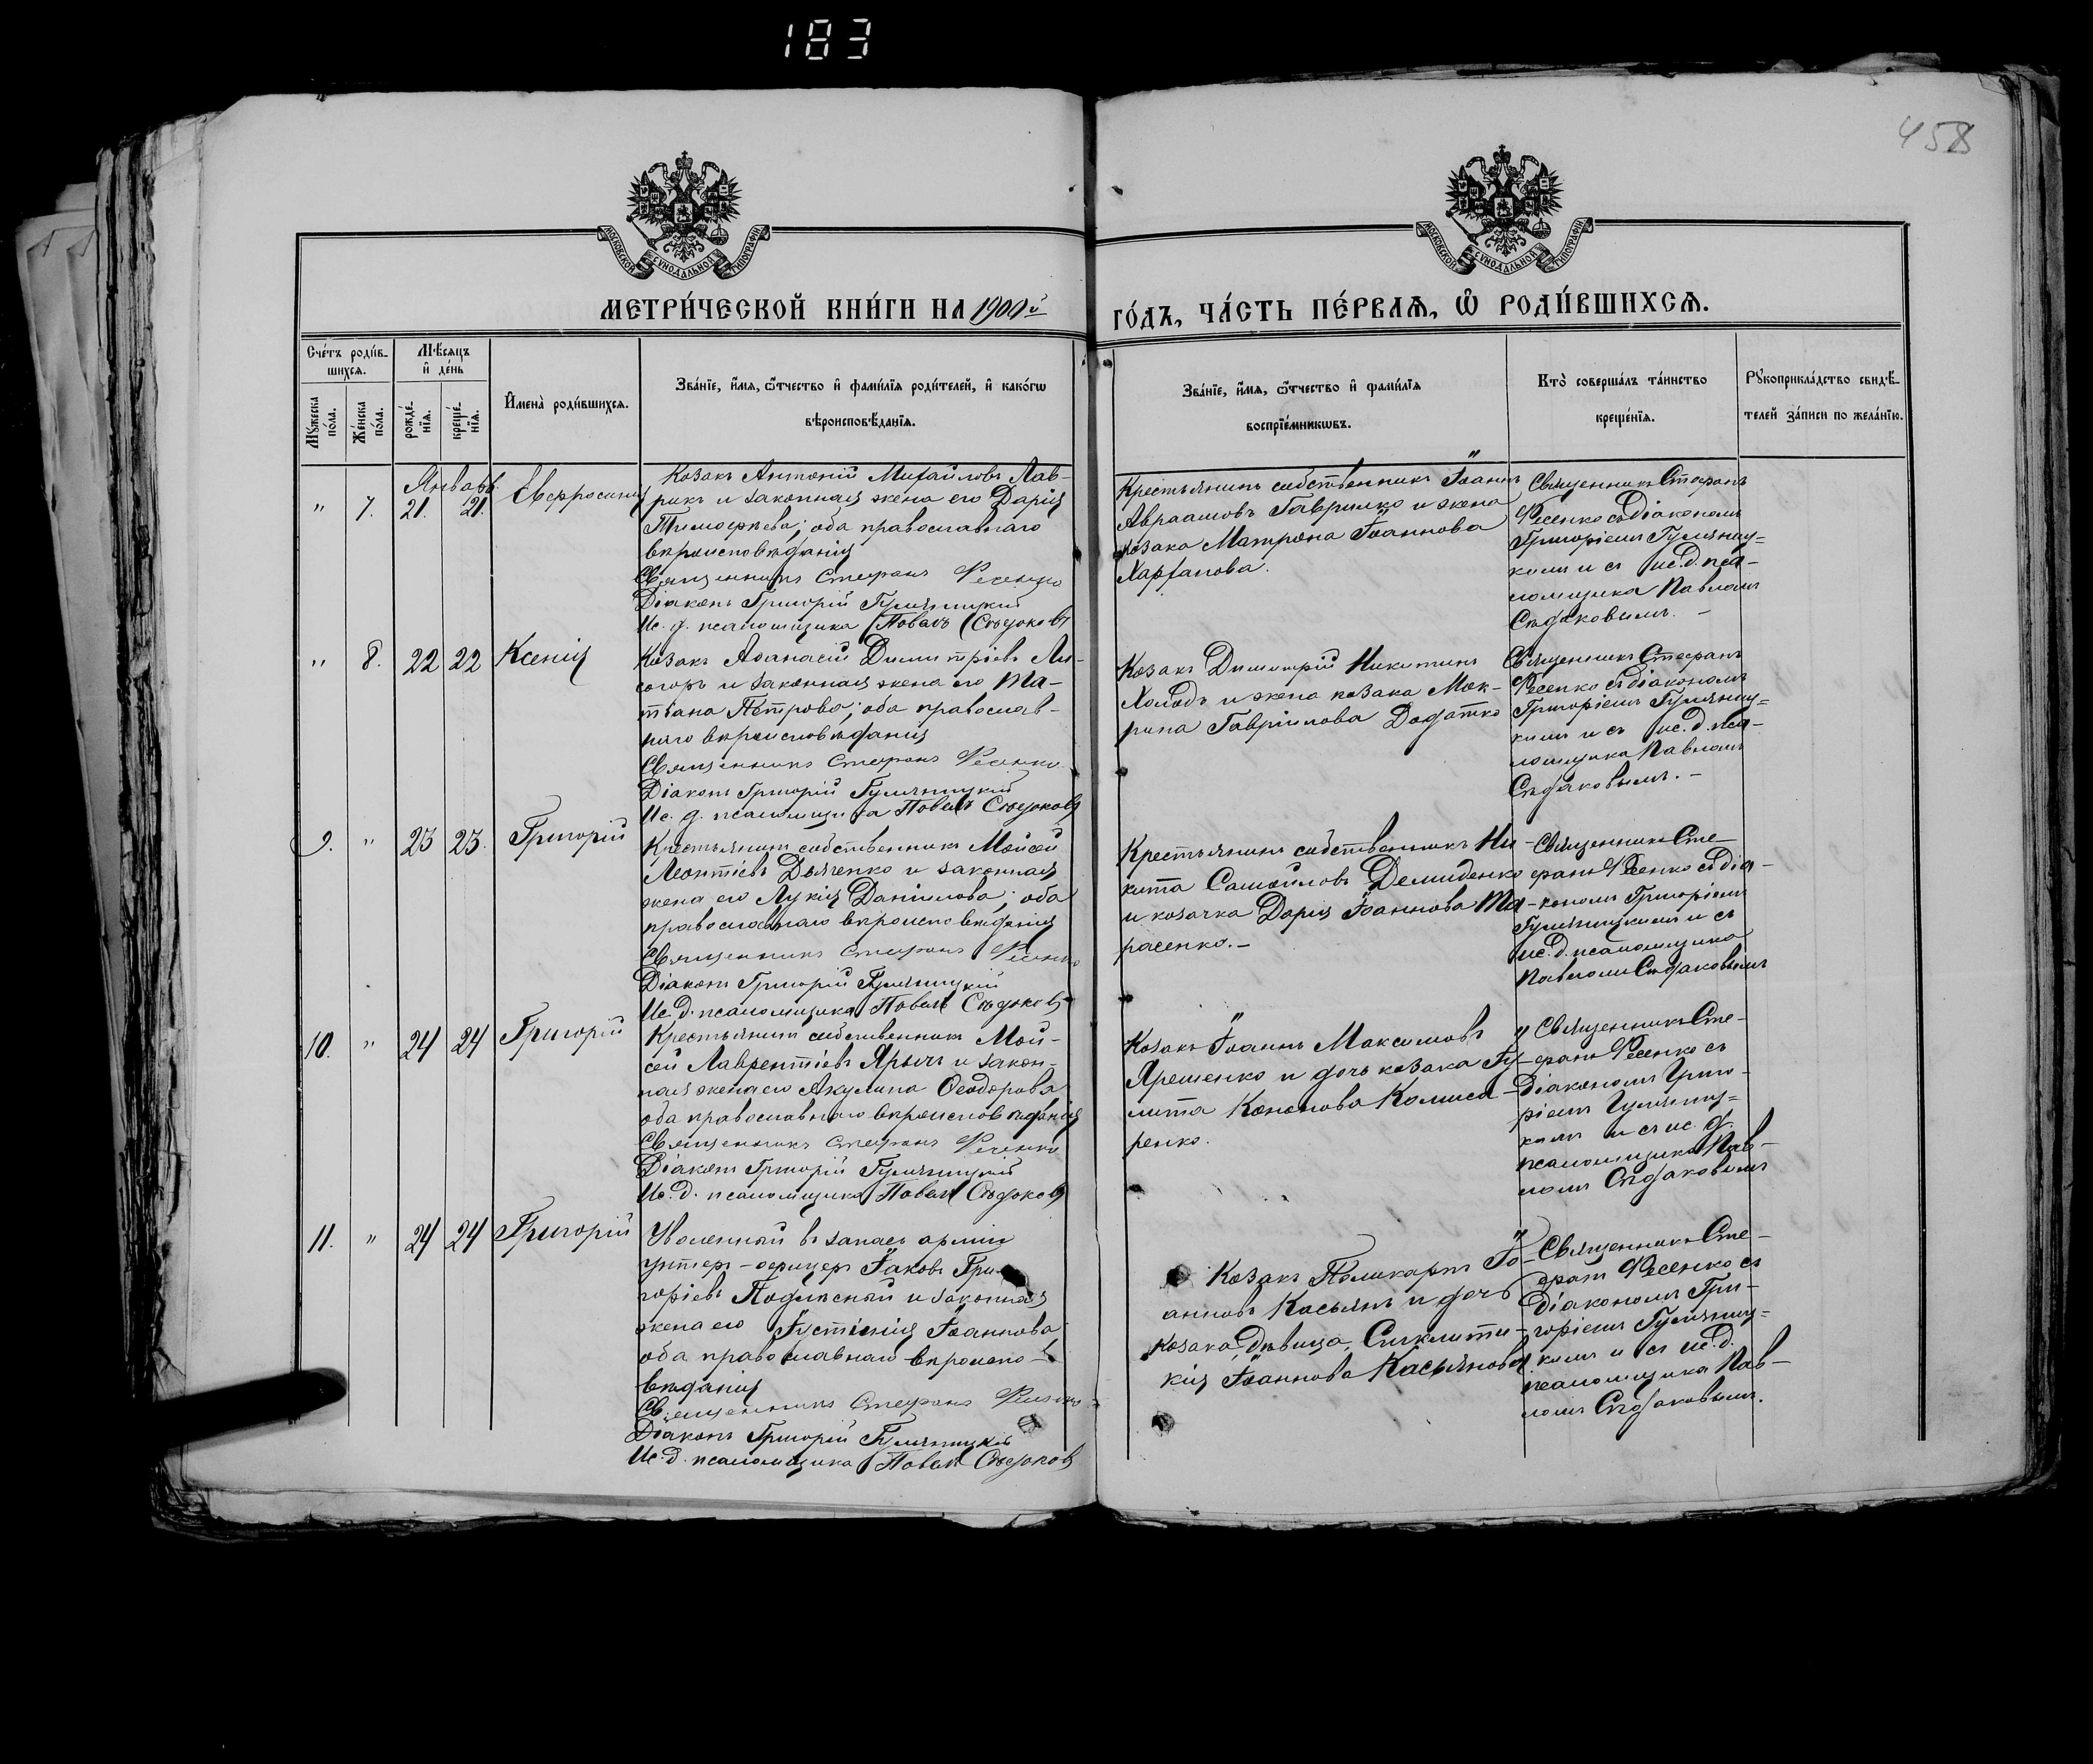 183
458
МОСКОВСКОЙ СУНОДАЛЬНОЙ ТИПОГРАФІИ
МОСКОВСКОЙ СУНОДАЛЬНОЙ ТИПОГРАФІИ
МЕТРИ́ЧЕСКОЙ КНИ́ГИ НА 1900й
ГО́ДЪ, ЧА́СТЬ ПЕ́РВАѦ, Ѡ҆ РОДИ́ВШИХСѦ.
Сче́тъ роди́в-
шихсѧ.
Мꙋжеска по́ла.
Же́нска по́ла.
Мѣ́сѧцъ
и҆ де́нь
рожде́-
нїѧ.
креще́-
нїѧ.
И҆мена̀ роди́вшихсѧ.
Зва́нїе, и҆́мѧ, ѻ҆́тчество и҆ фами́лїѧ роди́телей, и҆ како́гѡ
вѣроисповѣ́данїѧ.
Зва́нїе, и҆́мѧ, ѻ҆́тчество и҆ фами́лїѧ
воспрїе́мникѡвъ.
Кто̀ соверша́лъ та́инство
креще́нїѧ.
Рꙋкоприкла́дство свидѣ́-
телей за́писи по жела́нїю.
Январь
" 7. 21. 21. Евфросинія
Козакъ Антоній Михайловъ Лав-
рикъ и законная жена его Дарія
Тимофеева; оба православнаго
вѣроисповѣданія
Священникъ Стефанъ Фесенко
Діаконъ Григорій Гулячицкій
Ис. д. псаломщика Павелъ Съедаковъ
Крестьянинъ собственникъ Іоаннъ
Авраамовъ Гаврилко и жена
козака Матрона Іоаннова
Харханова.
Священникъ Стефанъ
Фесенко съ Діакономъ
Григоріемъ Гуляниц=
кимъ и съ ис. д. пса-
ломщика Павломъ
Съедаковымъ. -
" 8. 22 22 Ксенія
Козакъ Аѳанасій Димитріевъ Ли-
согоръ и законная жена его Та-
тіана Петрова; оба православ-
наго вѣроисповѣданія
Священникъ Стефанъ Фесенко
Діаконъ Григорій Гуляницкій
Ис. д. псаломщика Павелъ Съедаковъ
Козакъ Димитрій Никитинъ
Холодъ и жена козака Мок-
рина Гавріилова Додатко
Священникъ Стефанъ
Фесенко съ діакономъ
Григоріемъ Гуляниц=
кимъ и съ ис. д. пса-
ломщика Павломъ
Съедаковымъ. -
9. " 23 23. Григорій
Крестьянинъ собственникъ Моисей
Леонтіевъ Дьяченко и законная
жена его Лукія Даніилова; оба
православнаго вѣроисповѣданія
Священникъ Стефанъ Фесенко
Діаконъ Григорій Гуляницкій
Ис. д. псаломщика Павелъ Съедаковъ
Крестьянинъ собственникъ Ни-
кита Самойловъ Демиденко
и козачка Дарія Іоаннова Та-
расенко. -
Священникъ Сте-
фанъ Фесенко съ діа-
кономъ Григоріемъ
Гуляницкимъ и съ
ис. д. псаломщика
Павломъ Съедаковымъ
10. " 24 24 Григорій
Крестьянинъ собственникъ Мои-
сей Лаврентіевъ Ярычъ и закон-
ная жена его Акулина Ѳеодорова
оба православнаго вѣроисповѣданія
Священникъ Стефанъ Фесенко
Діаконъ Григорій Гуляницкій
Ис. д. псаломщика Павелъ Съедаковъ
Козакъ Іоаннъ Максимовъ
Ярешенко и дочь козака Іу-
лита Кононова Комиса-
ренко.
Священникъ Сте-
фанъ Фесенко съ
діакономъ Григо-
ріемъ Гуляниц=
кимъ и съ ис. д.
псаломщика Пав-
ломъ Съедаковымъ
11. " 24 24 Григорій
Уволенный въ запасъ арміи
унтеръ-офицеръ Іаковъ Гри-
горіевъ Подлѣсный и законная
жена его Іустинія Іоаннова
оба православнаго вѣроиспо-
вѣданія
Священникъ Стефанъ Фесенко
Діаконъ Григорій Гуляницкій
Ис. д. псаломщика Павелъ Съедаковъ
Козакъ Поликарпъ Іо-
анновъ Касьянъ и дочь
козака, дѣвица, Синклити-
кія Іоаннова Касьянова
Священникъ Сте-
фанъ Фесенко съ
діакономъ Гри-
горіемъ Гуляниц=
кимъ и съ ис. д.
псаломщика Пав-
ломъ Съедаковымъ.